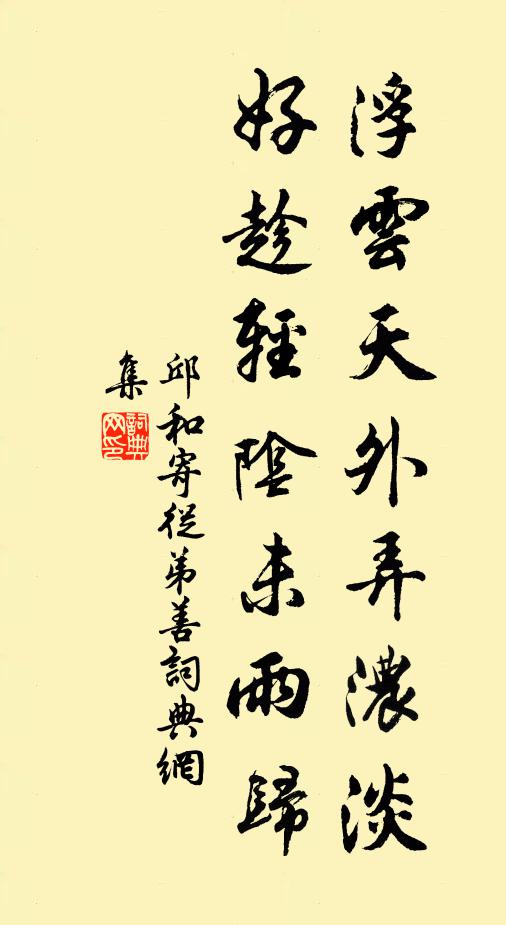 浮雲天外弄濃淡
好趁輕陰未雨歸
邱和寄從弟善詞典網
集
詞典網印